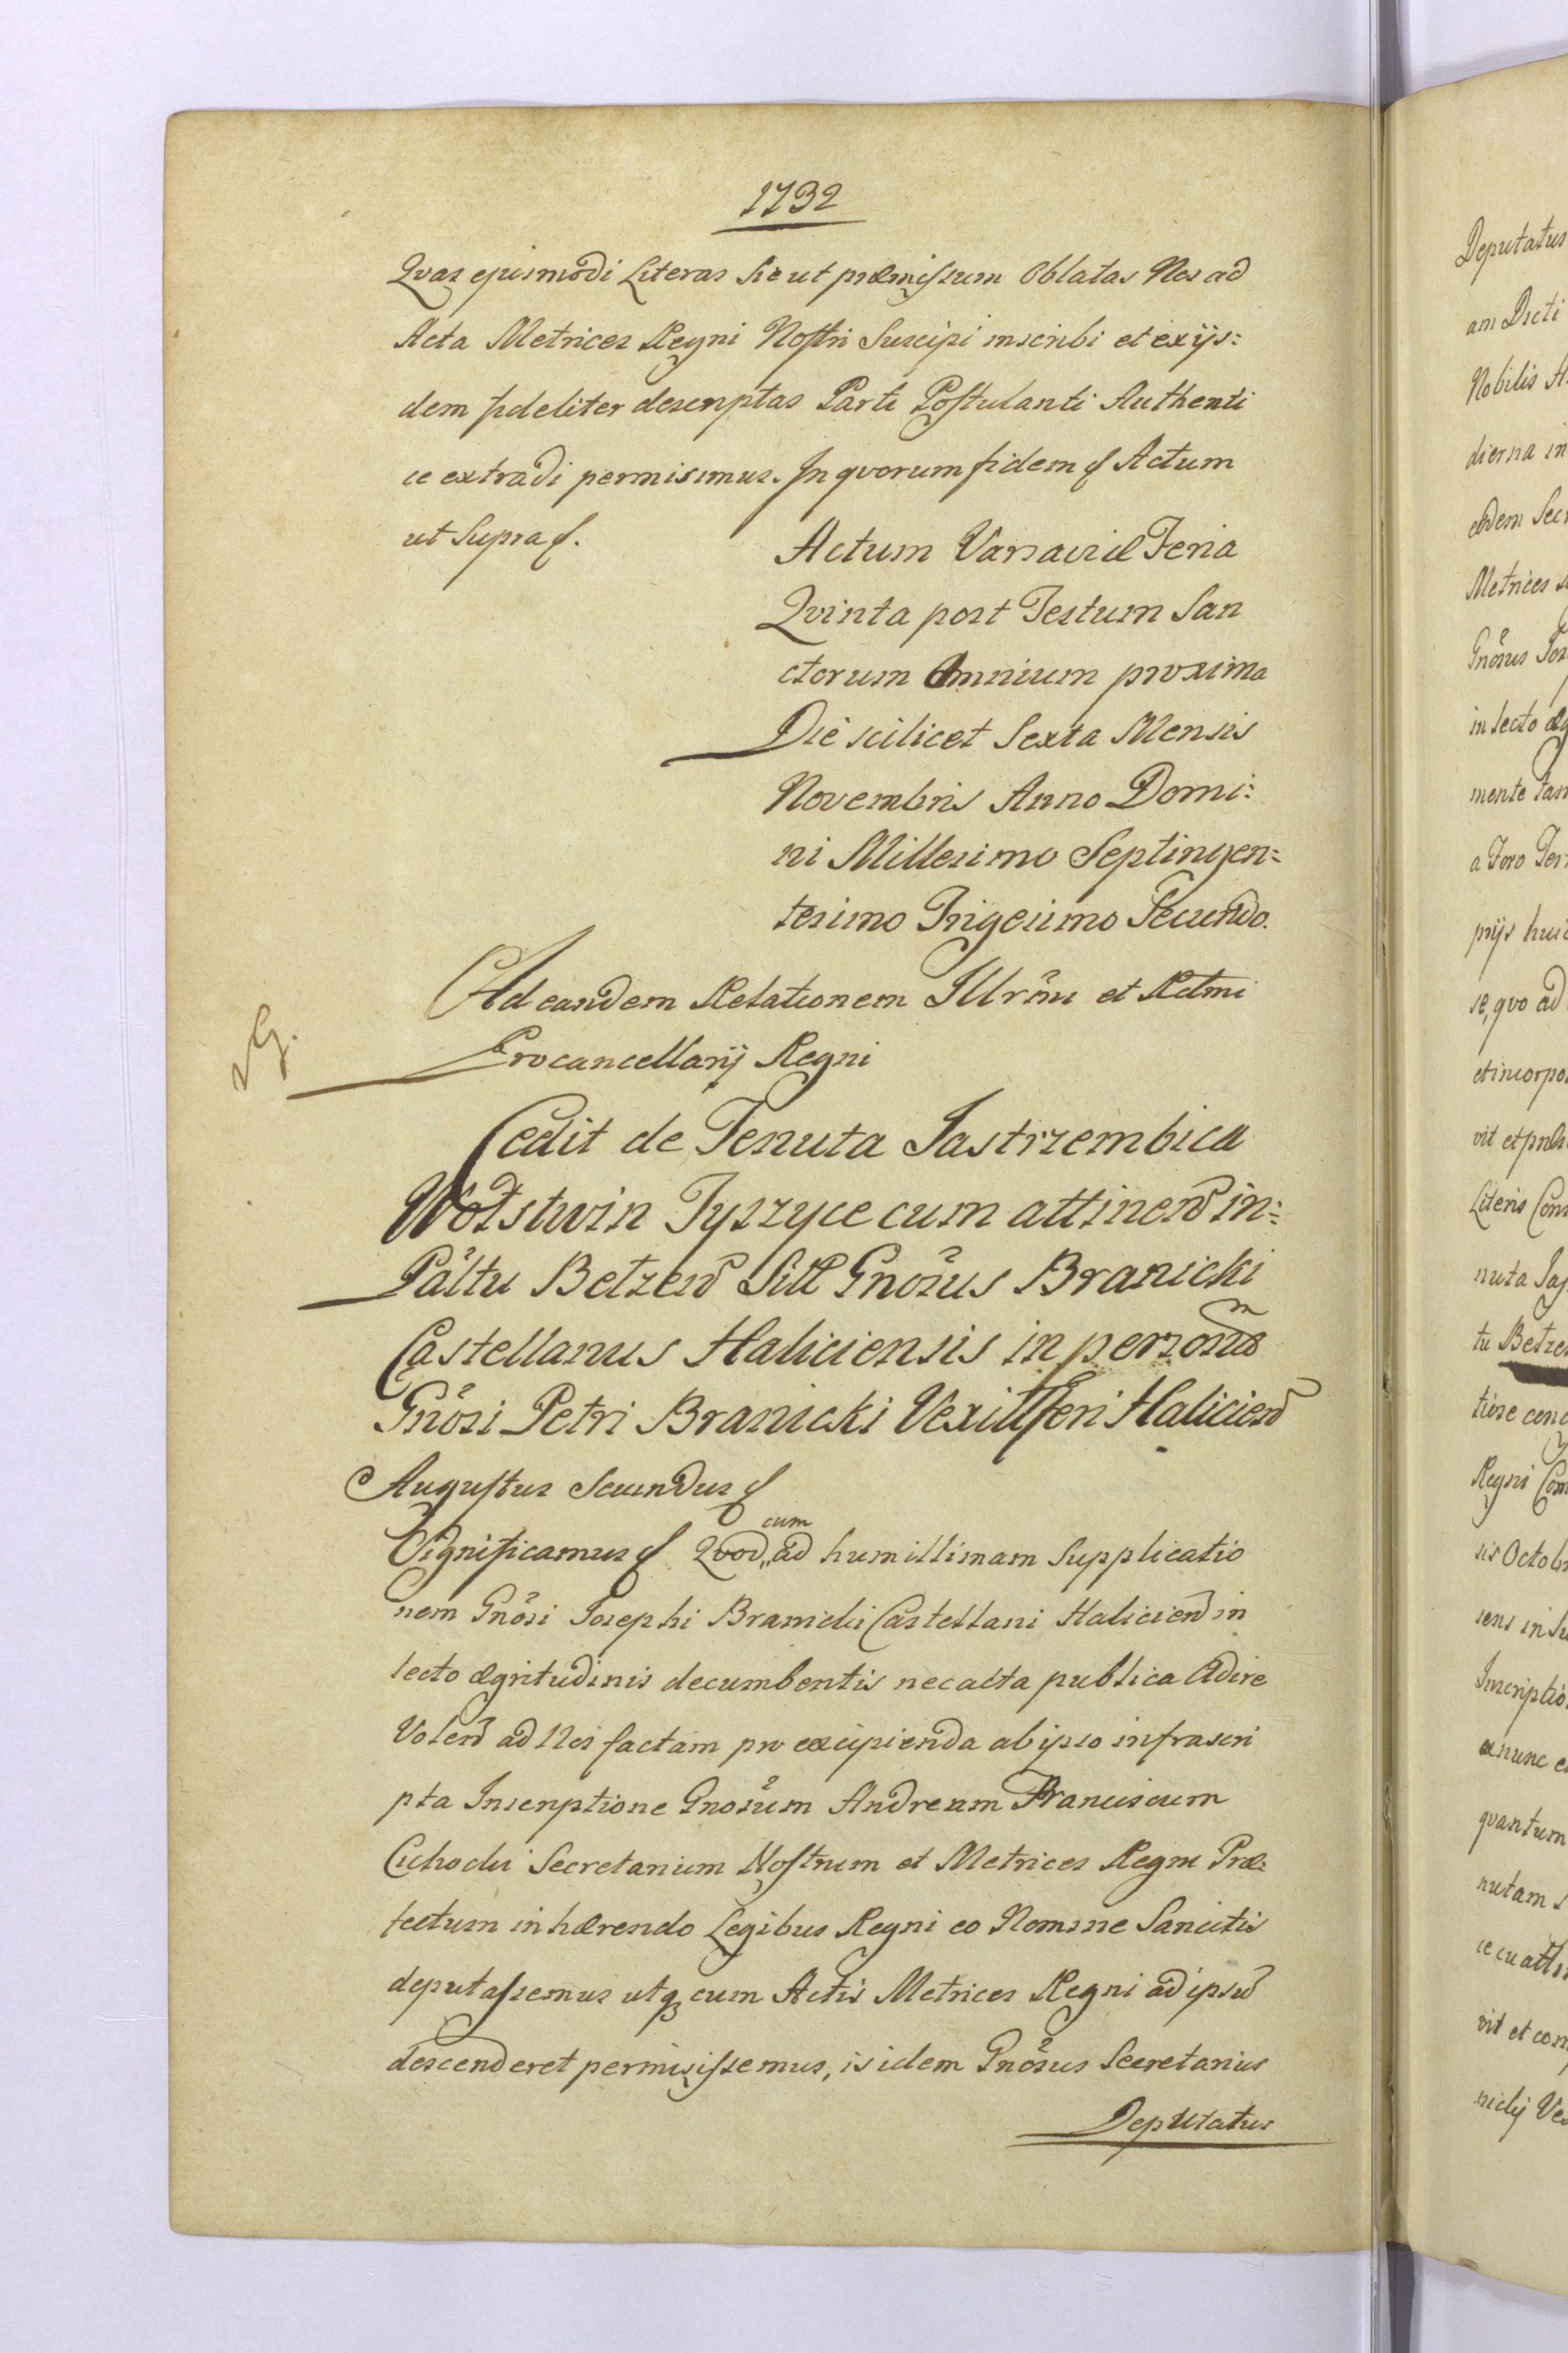 1732
Qvas ejusmodi Literas Sic ut præmissum Oblatas Nos ad
Acta Metrices Regni Nostri Suscipi inscribi et ex ijs=
dem fideliter descriptas Parti Postulanti Authenti
ce extradi permisimus. In qvorum fidem &c Actum
ut Supra &c.
Actum Varsaviæ Feria
Qvinta post Festum San
ctorum Omnium proxima
Die scilicet Sexta Mensis
Novembris Anno Domi:
ni Millesimo Septingen=
tesimo Trigesimo Secundo.
Ad eandem Relationem Illrmi et Rdmi
Procancellarij Regni
Cedit de Tenuta Jastrzembica
Wolstwin Tyszyce cum attinend in=
Palttu Betzend Gnosus Branicki
Castellanus Haliciensis in personã
Gnosi Petri Branicki Vexilliferi Haliciend
Augustus Secundus &c
Significamus &c Qvod, cum ad humillimam Supplicatio
nem Gnosi Josephi Branicki Castellani Haliciend in
lecto ægritudinis decumbentis nec acta publica Adire
Volend ad Nos factam pro excipienda ab ipso infrascri
pta Inscriptione Gnosum Andream Franciscum
Cichocki Secretarium Nostrum et Metrices Regni Præ=
fectum inhærendo Legibus Regni eo Nomine Sancitis
deputassemus utq cum Actis Metrices Regni ad ipsũ
descenderet permisissemus, is idem Gnosus Secretarius
Deputatus
Deputatus
am Dicti
Nobilis
dierna in
Metrices
Gnosus
in lecto
mente
a Foro
pijs
se, qvo ad
et incorpo
vit et
Literis
nuta
tu
Regni
sis Octob
sens in
Inscriptio
qvantum
nutam
vit et con